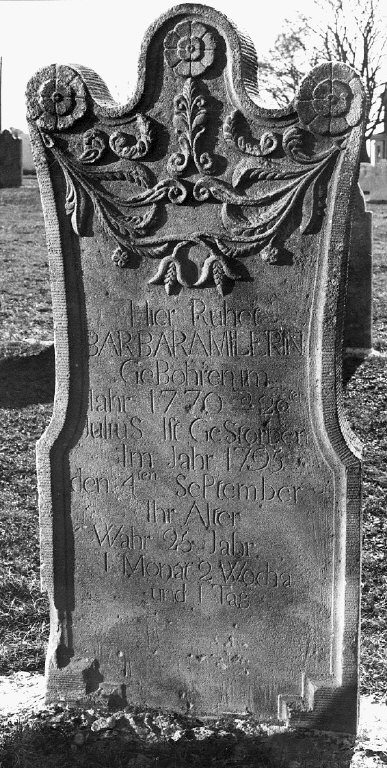 Hier Ruhet
BARBARAMILERIN
GeBohren im
Jahr 1770
JuliuS Ist GeStorben
Im Jahr 1795
den 4ten SePtember
Ihr Alter
Wahr 25 Jahr
1 Monat 2 Woch'a
und 1 Tag